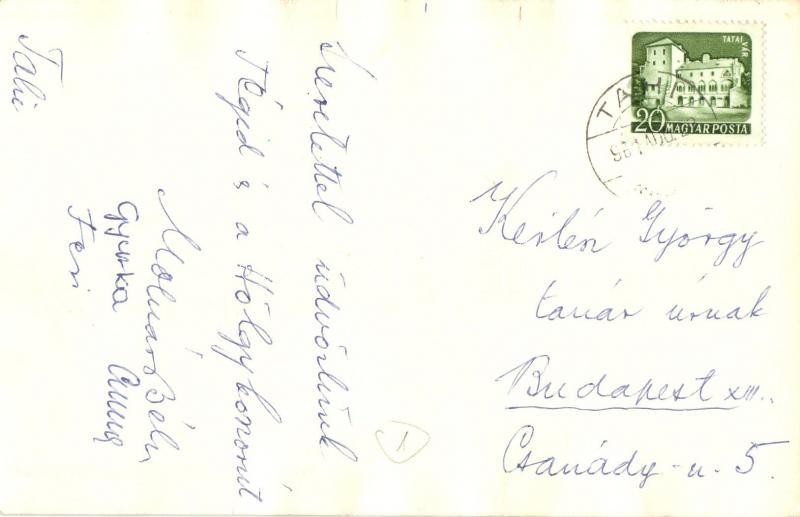 Tahi
Szeretettel üdvözlünk
Téged és a Hölgykoszorút
Molnár Béla
Gyurka Anna
Feri
TATAI VÁR
20 MAGYAR POSTA
TAHI
961 AUG. 22
György
tanár úrnak
Budapest XIII.
Csanády-u. 5.
1